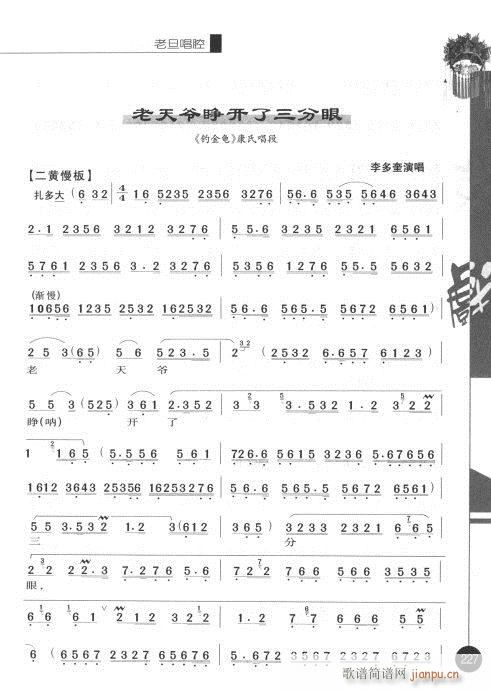 老旦唱腔
老天爷睁开了三分眼
《钓金龟》康氏唱段
【二黄慢板】 李多奎演唱
扎多大 (6 32) 4/4 16 5235 2356 3276 56.6 535 5646 3643
2.1 2356 3212 3276 5.65 3235 2321 6561
5.761 2356 3.2 3276 5.5.5 3561 5672 6561
(渐慢)
10656 1235 2532 162532 56.6 565.5 5672 6561)
2 5 3 (65) 5 6 523.5 2 32 (2532 6.657 6123)
老 天 爷
5 5 3 (525) 361 2.352 3 3 3.532 1.2 3 22
睁(呐) 开 了
1 2 165 (5.556 561 726.6 5615 3236 5.6765
1612 3643 25356 16253276 5.635 2356 5672 6561)
5 5 3.532 1.2 3(612 365) 3233 2321 6(65 6561)
三 分
2 2 22.3 7276 5.6 2 2 7 6 5635 6723
眼,
6 1 6 1 2 2212 2(612) 2.101 2 7 6 66 5 6 7
6 (6567 2327 6567 6276 5.672 6532 7276 5356
227
歌谱简谱网
jianpu.cn